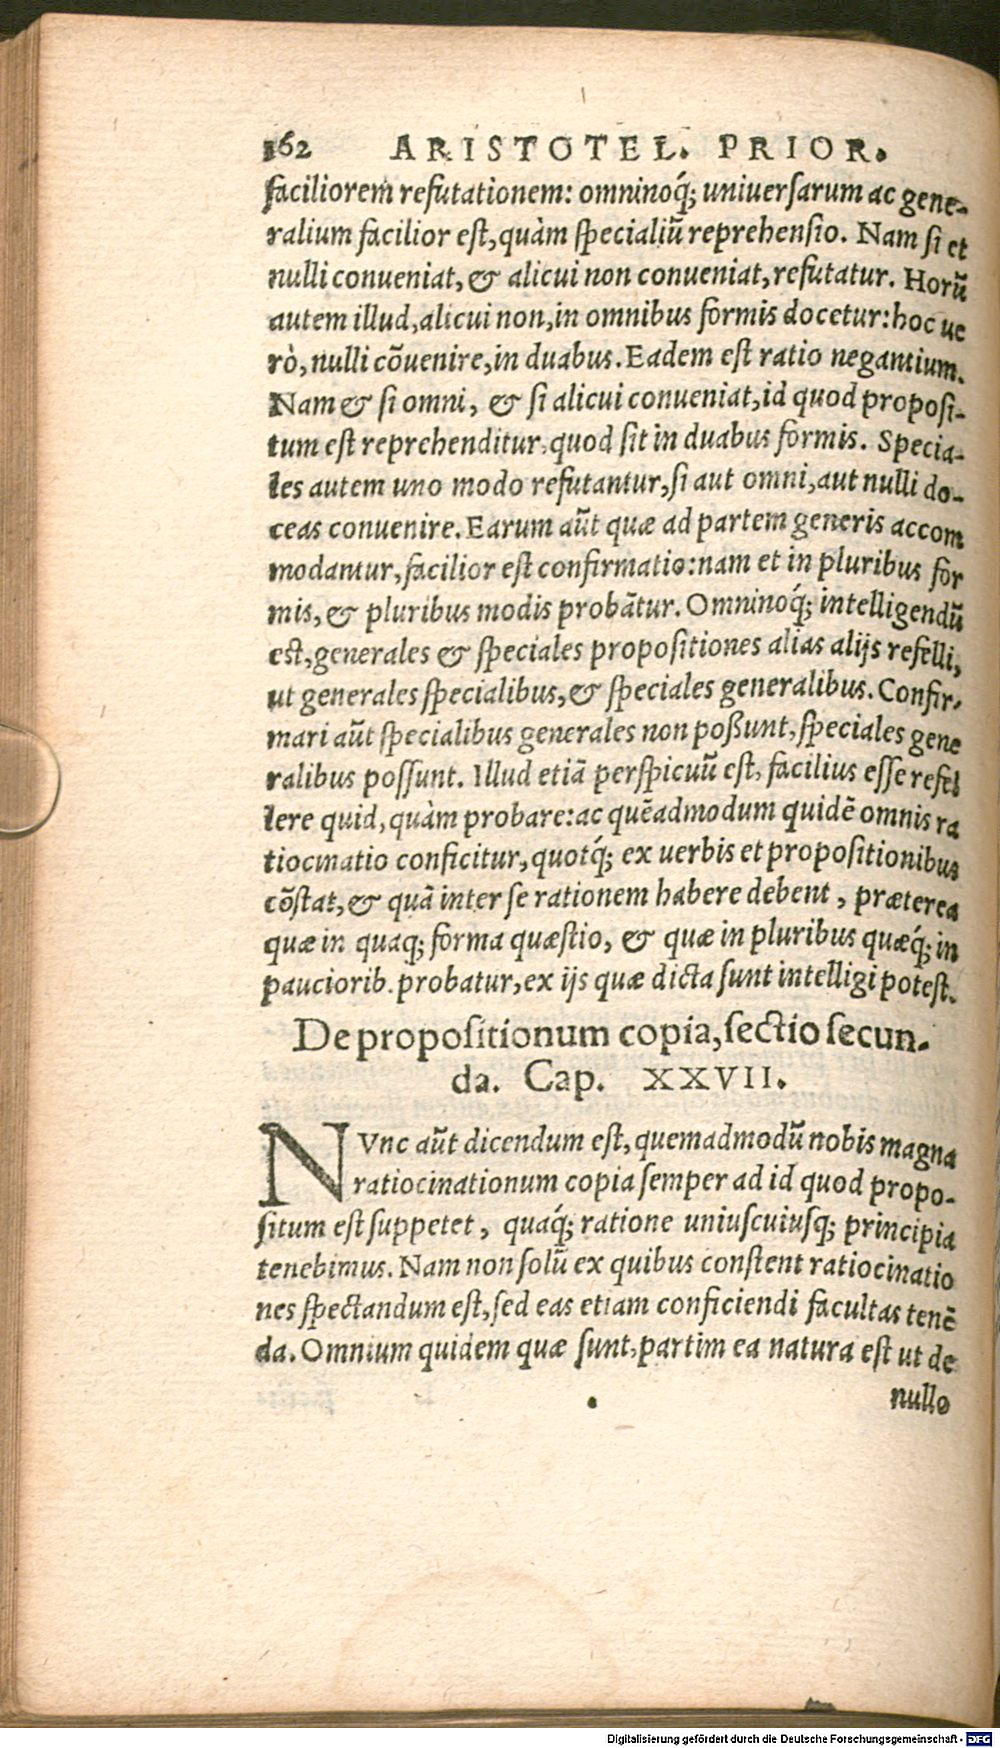 162 ARISTOTEL. PRIOR.
faciliorem refutationem: omninoq́; uniuersarum ac gene-
ralium facilior est, quàm specialiũ reprehensio. Nam si et
nulli conueniat, & alicui non conueniat, refutatur. Horũ
autem illud, alicui non, in omnibus formis docetur: hoc ue
rò, nulli cõuenire, in duabus. Eadem est ratio negantium.
Nam & si omni, & si alicui conueniat, id quod proposi-
tum est reprehenditur, quod sit in duabus formis. Specia-
les autem uno modo refutantur, si aut omni, aut nulli do-
ceas conuenire. Earum aũt quæ ad partem generis accom
modantur, facilior est confirmatio: nam et in pluribus for
mis, & pluribus modis probãtur. Omninoq́; intelligendũ
est, generales & speciales propositiones alias alijs refelli,
ut generales specialibus, & speciales generalibus. Confir-
mari aũt specialibus generales non possunt, speciales gene
ralibus possunt. Illud etiã perspicuũ est, facilius esse refel
lere quid, quàm probare: ac quẽadmodum quidẽ omnis ra
tiocinatio conficitur, quotq́; ex uerbis et propositionibus
cõstat, & quã inter se rationem habere debent, præterea
quæ in quaq; forma quæstio, & quæ in pluribus quæq́; in
pauciorib. probatur, ex ijs quæ dicta sunt intelligi potest.
De propositionum copia, sectio secun-
da. Cap. XXVII.
NVnc aũt dicendum est, quemadmodũ nobis magna
ratiocinationum copia semper ad id quod propo-
situm est suppetet, quaq́; ratione uniuscuiusq; principia
tenebimus. Nam non solũ ex quibus constent ratiocinatio
nes spectandum est, sed eas etiam conficiendi facultas tenẽ
da. Omnium quidem quæ sunt, partim ea natura est ut de
nullo
Digitalisierung gefördert durch die Deutsche Forschungsgemeinschaft - DFG